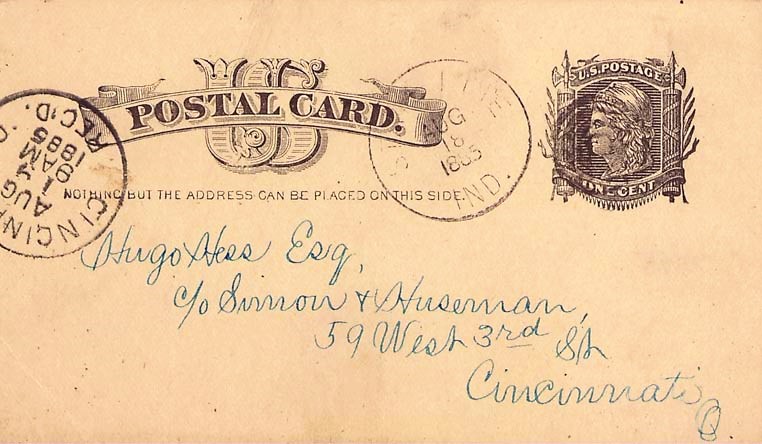 U.S. POSTAGE
US
POSTAL CARD.
ONE CENT
NOTHING BUT THE ADDRESS CAN BE PLACED ON THIS SIDE.
AUG
18
1885
IND.
CINCIN
AUG
9 AM
1885
REC'D.
Hugo Hess Esq,
c/o Simon & Huseman,
59 West 3rd St
Cincinnati
O